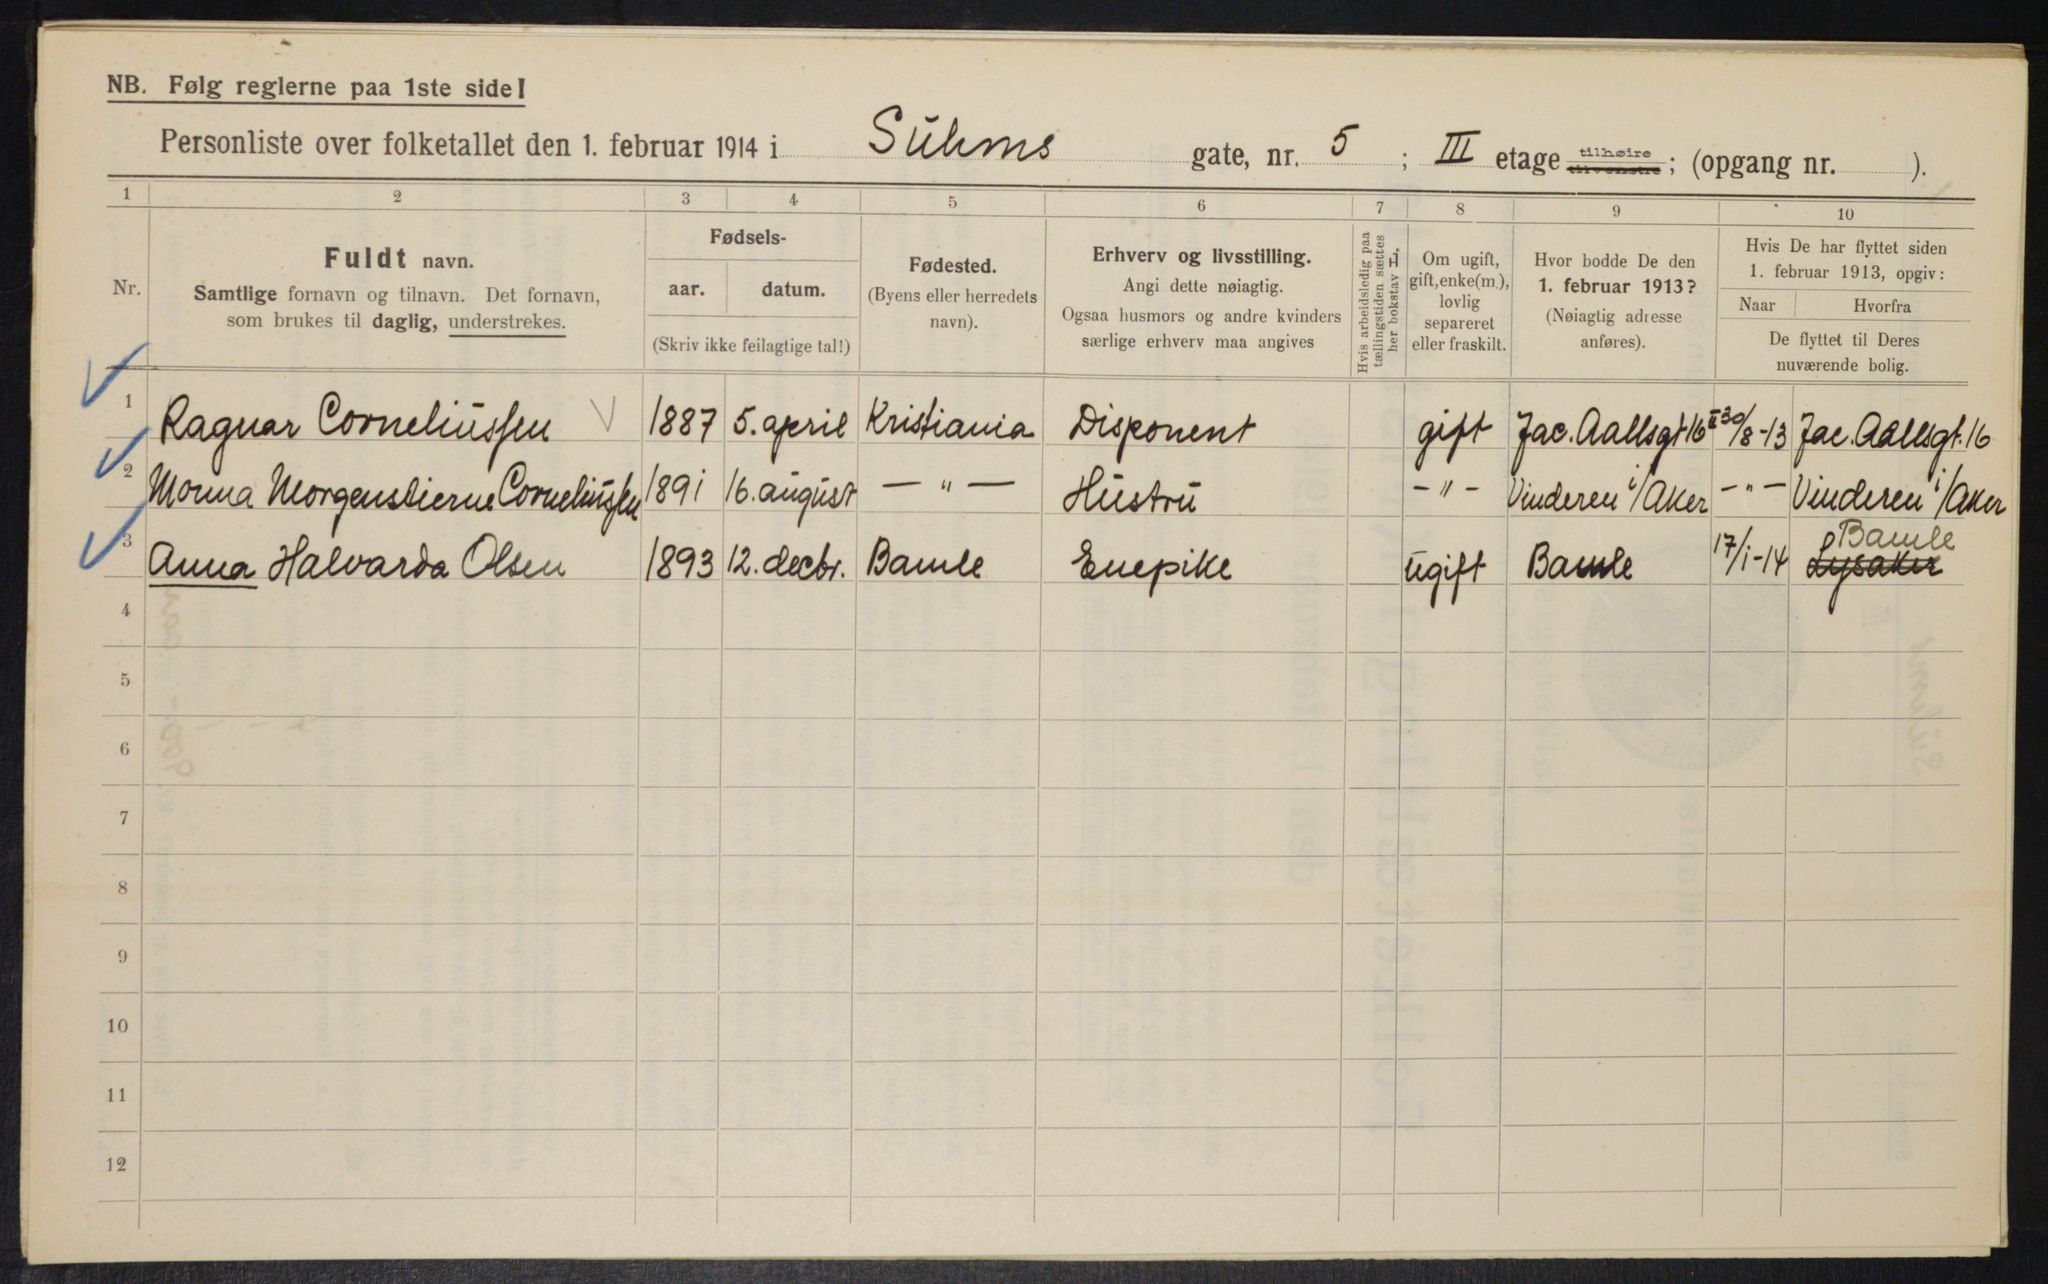 NB. Følg reglerne paa 1ste side!
Personliste over folketallet den 1. februar 1914 i Suhms gate, nr. 5 ; III etage tilhøire tilvenstre ; (opgang nr. ).
1 2 3 4 5 6 7 8 9 10
Nr.
Fuldt navn.
Samtlige fornavn og tilnavn. Det fornavn,
som brukes til daglig, understrekes.
Fødsels-
aar. datum.
(Skriv ikke feilagtige tal!)
Fødested.
(Byens eller herredets
navn).
Erhverv og livsstilling.
Angi dette nøiagtig.
Ogsaa husmors og andre kvinders
særlige erhverv maa angives
Hvis arbeidsledig paa
tællingstiden sættes
her bokstav L,
Om ugift,
gift, enke(m.),
lovlig
separeret
eller fraskilt.
Hvor bodde De den
1. februar 1913?
(Nøiagtig adresse
anføres).
Hvis De har flyttet siden
1. februar 1913, opgiv:
Naar Hvorfra
De flyttet til Deres
nuværende bolig.
1 Ragnar Corneliussen 1887 5. april Kristiania Disponent gift Jac. Aallsgt 16 II 30/8-13 Jac. Aallsgt. 16
2 Monna Morgenstierne Corneliussen 1891 16. august — " — Hustru - " - Vinderen i/Aker - " - Vinderen i/Aker
3 Anna Halvarda Olsen 1893 12. decbr. Bamle Enepike ugift Bamle 17/1-14 Bamle Lysaker
4
5
6
7
8
9
10
11
12